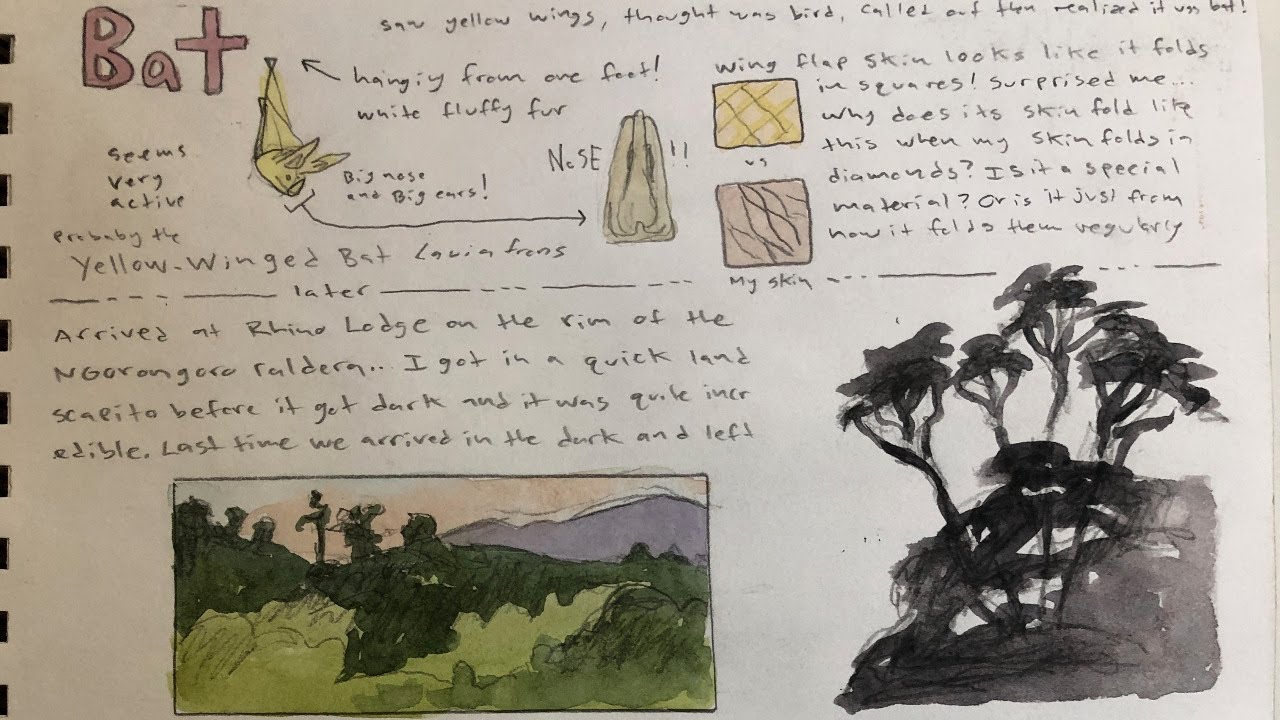 Bat
saw yellow wings, thought was bird, called out then realized it was bat!
hangiy from one foot!
white fluffy fur
seems
very
active
Big nose
and Big ears!
NOSE !!
wing flap skin looks like it folds
in squares! surprised me...
why does its skin fold like
this when my skin folds in
diamonds? Is it a special
material? Or is it just from
how it folds them regularly
vs
My skin
Probaby the
Yellow-Winged Bat Lavia frons
later
Arrived at Rhino Lodge on the rim of the
NGorongoro caldera... I got in a quick land
scapito before it got dark and it was quite incr
edible. Last time we arrived in the dark and left